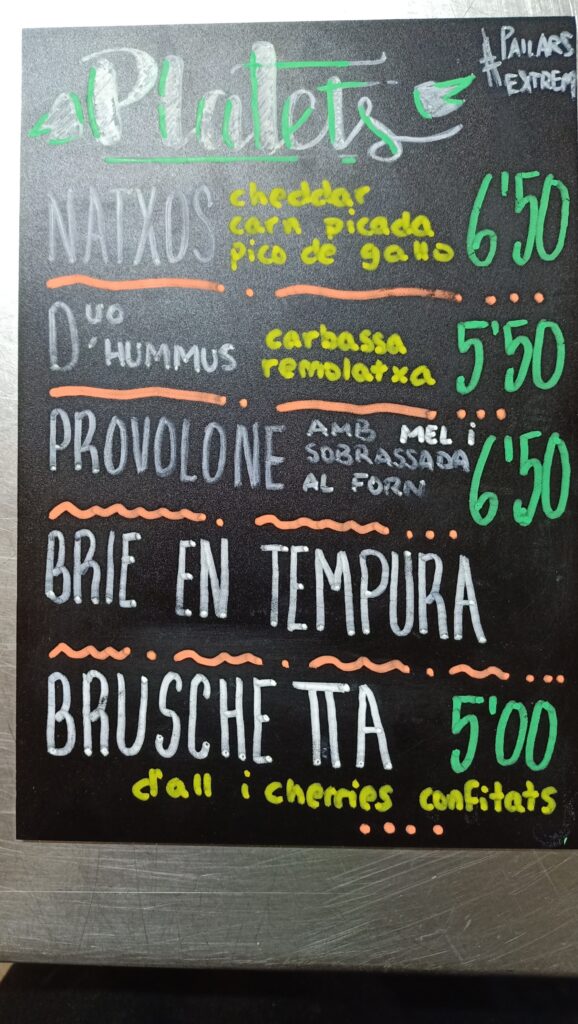 Platets
#PALLARS
EXTREM
NATXOS cheddar
carn picada
pico de gallo 6'50
DUO
D'HUMMUS carbassa
remolatxa 5'50
PROVOLONE AMB MEL i
SOBRASSADA
AL FORN 6'50
BRIE EN TEMPURA
BRUSCHETTA 5'00
d'all i cherries confitats